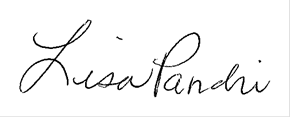 Lisa Pandri